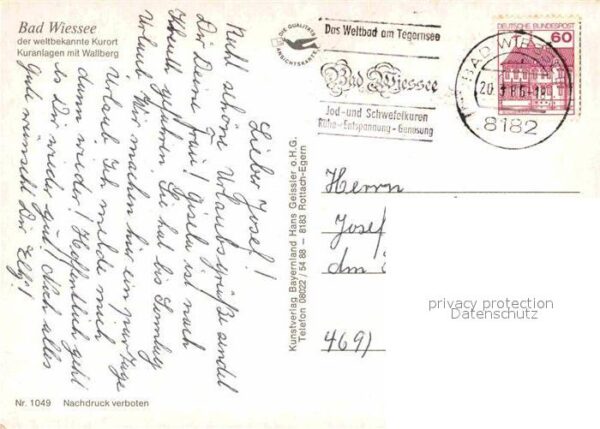 Bad Wiessee
der weltbekannte Kurort
Kuranlagen mit Wallberg
Lieber Josef!
Recht schöne Urlaubsgrüße sendet
Dir Deine Frau! Gisela ist nach
gefahren. Sie hat bis Sonntag
Urlaub. Wir machen hier ein paar Tage
Urlaub. Ich melde mich
dann wieder! Hoffentlich geht
es Dir wieder gut! Noch alles
Gute wünscht Dir Elfi!
Nr. 1049 Nachdruck verboten
Kunstverlag Bayernland Hans Geissler o.H.G.
Telefon 08022 / 54 88 – 8183 Rottach-Egern
DIE QUALITÄTS
ANSICHTSKARTE
Das Weltbad am Tegernsee
Bad Wiessee
Jod- und Schwefelkuren
Ruhe-Entspannung-Genesung
DEUTSCHE BUNDESPOST
60
BAD WIESSEE
8182
Herrn
Josef
Am
469
privacy protection
Datenschutz